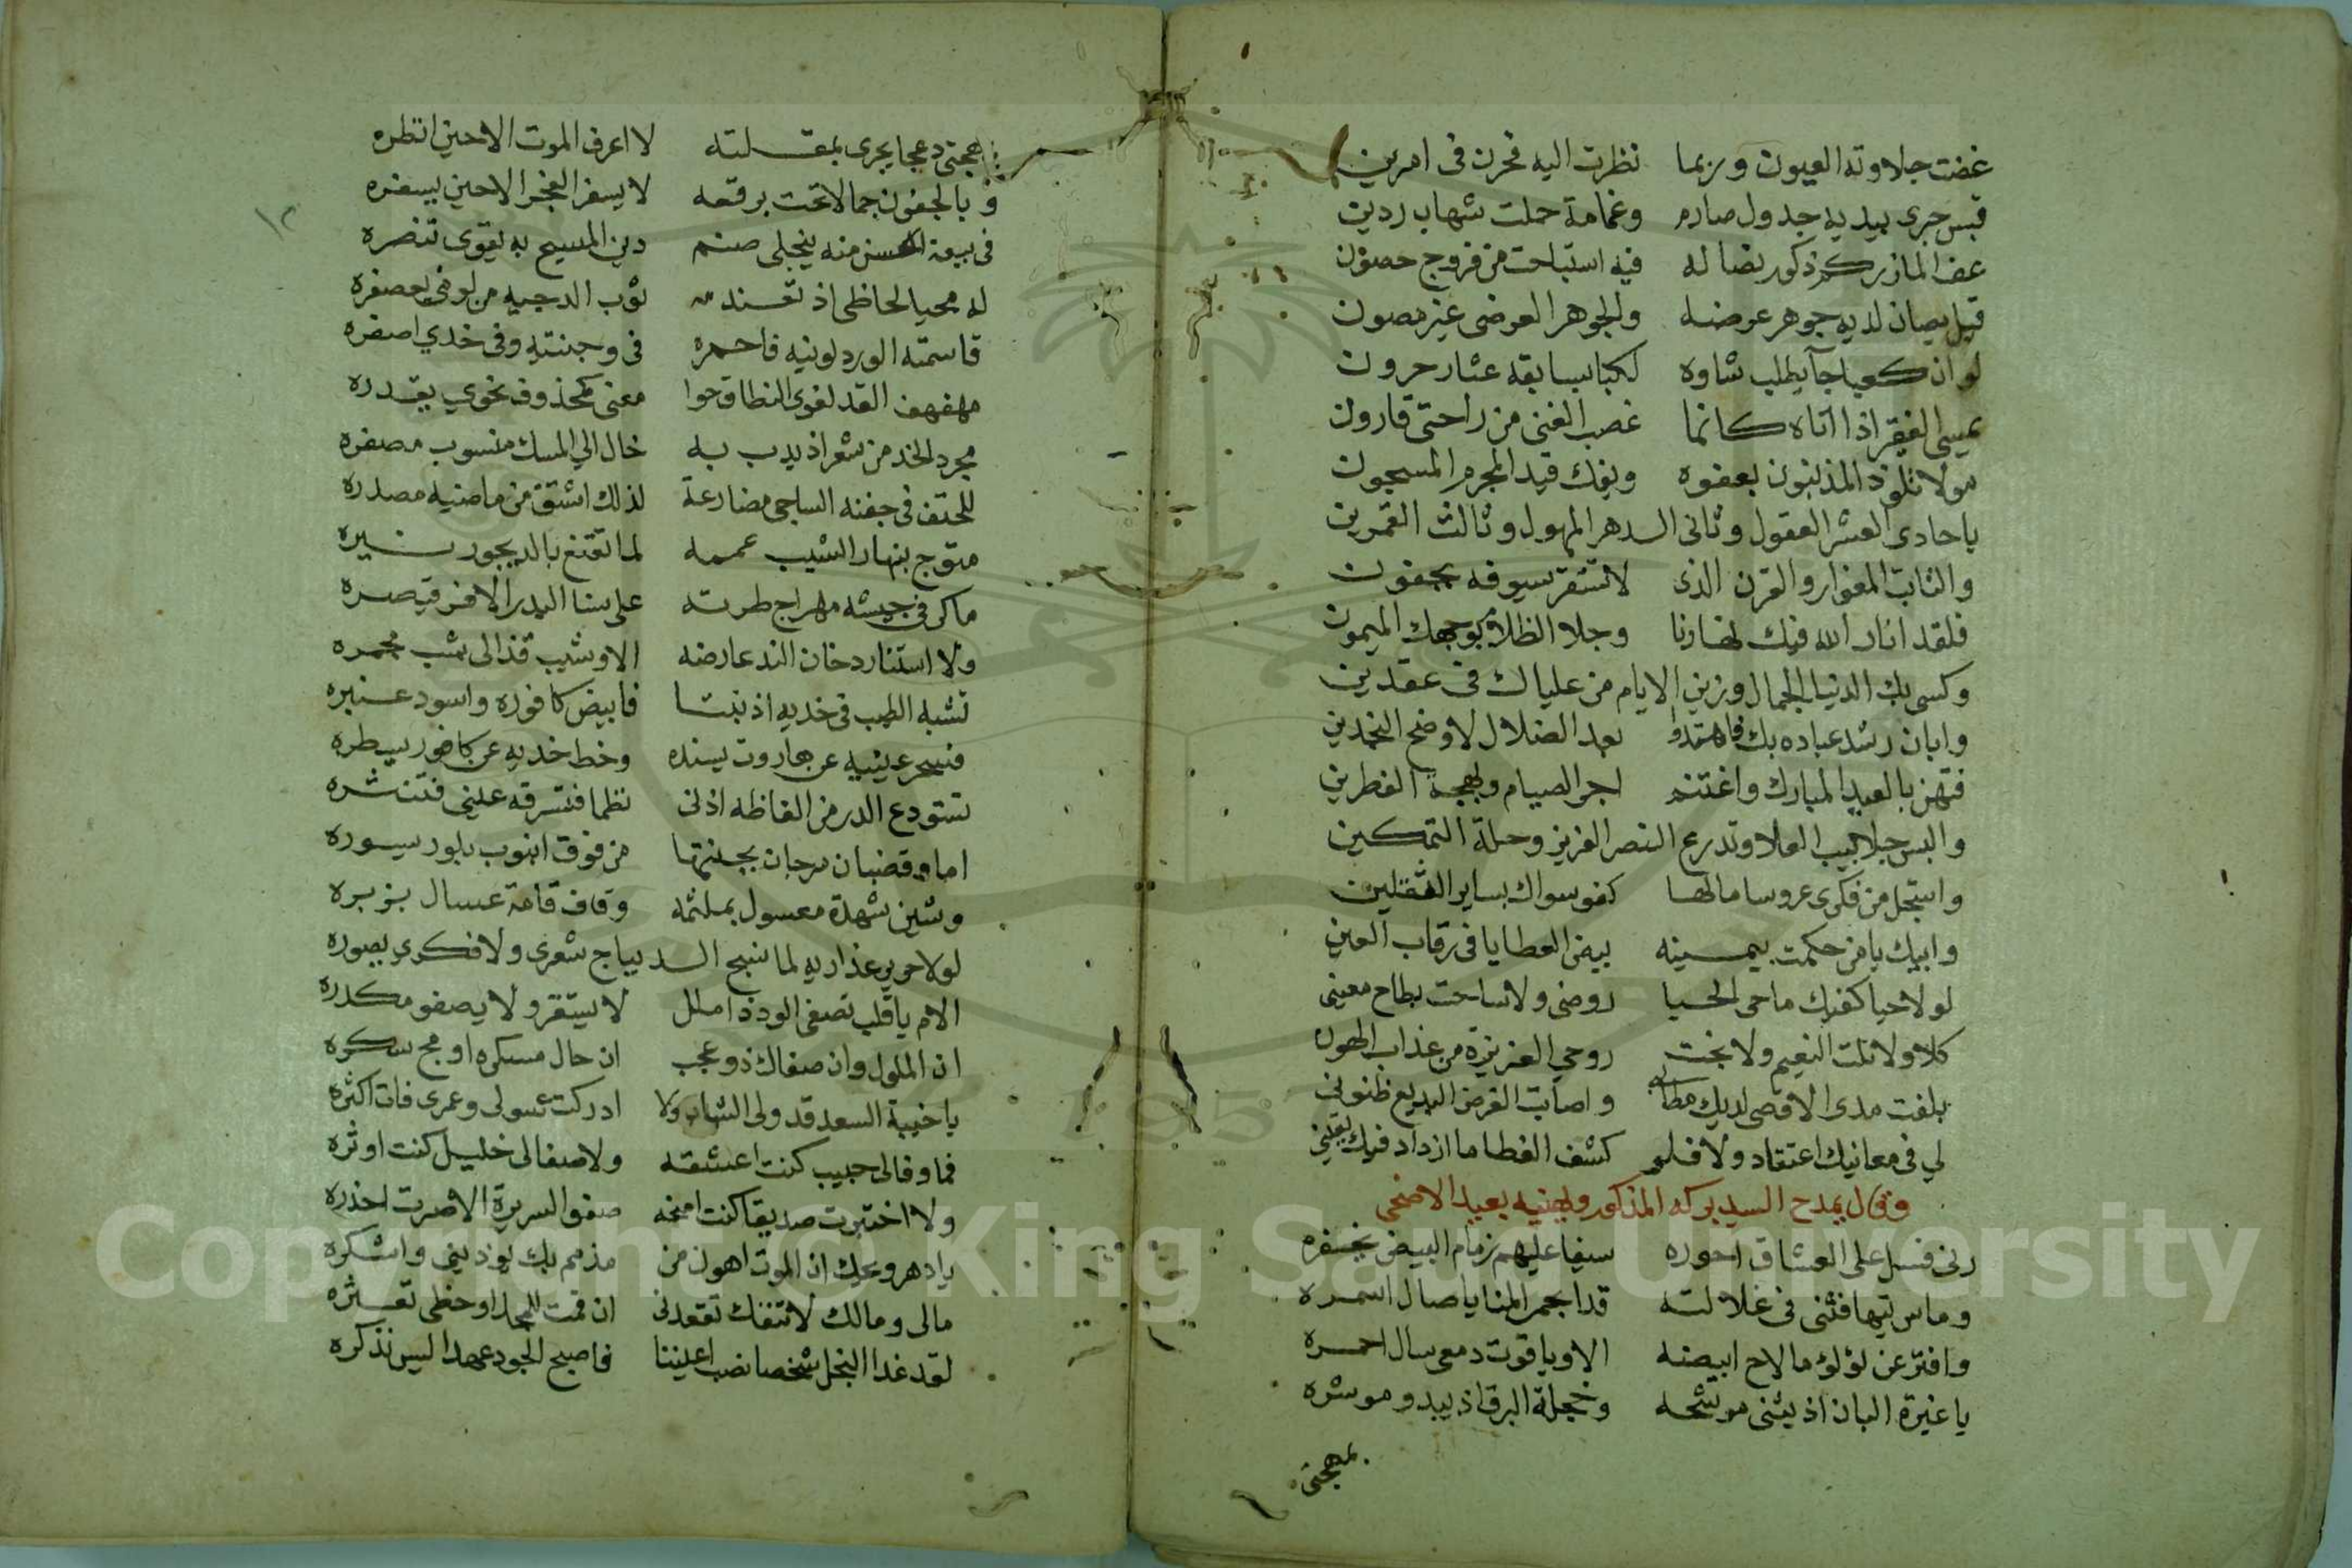 غضت جلاوته العيون وربما نظرت اليه فحرن في امرين
قبس جرى بيديه جدول صارم وغمامة حملت شهاب ردين
عف المازر كم ذكور نضاله فيه استباحت من فروج حصون
قيل يصان لديه جوهر عرضه والجوهر العرضى غير مصون
لو ان كعبا جآ يطلب شاوه لكبا بسابقه عثار حرون
يمسى الفقير اذا اتاه كانما غصب الغنى من راحتى قارون
مولا تلوذ المذنبون بعفوه ويفك قيد المجرم المسجون
يا حادى العشر العقول وثانى الدهر المهول وثالث القمرين
والثابت المغوار والقرن الذى لا تستقر سيوفه بجفون
فلقد انار الله فيك نهارنا وجلا الظلام بوجهك الميمون
وكسى بك الدنيا الجمال وزين الايام من علياك فى عقدين
وابان رشد عباده بك فاهتدوا بعد الضلال لاوضح النجدين
فتهن بالعيد المبارك واغتنم اجر الصيام وبهجة الفطرين
والبس جلابيب العلا وتدرع النصر العزيز وحلة التمكين
واستجل من فكرى عروسا مالها كفو سواك بساير الثقلين
وابيك يا من حكمت بيمينه بيض العطايا فى رقاب العين
لولا حيا كفيك ما حى الحيا روضى ولا ساحت بطاح معينى
كلا ولا نلت النعيم ولا نجت روحي العزيزة من عذاب الهون
بلغت مدى الاقصى لديك مطالبي واصابت الغرض البديع ظنونى
لي فى معانيك اعتقاد ولا فلو كشف الغطا ما ازداد فيك يقينى
وقال يمدح السيد بركه المذكور ويهنيه بعيد الاضحى
رنى فسل على العشاق احوره سيفا عليهم زمام البيض يخفره
وماس تيها فثنى فى غلالته قدا بجمر المنايا صال اسمره
وافتر عن لؤلؤ ما لاح ابيضه الا وياقوت دمعى سال احمره
يا غيرة البان اذ يثنى موشحه وخجلة البرق اذ يبدو موشره
بمهجتى
بمهجتى دعجا يجرى بمقلته لا اعرف الموت الا حين انظره
وبالجفون جمالا تحت برقعه لا يسفر الفجر الا حين يسفره
فى بيعة الحسن منه ينجلى صنم دين المسيح به يقوى تنصره
له محيا لحاظى اذ ثوب الدجيه من لونى يعصفره
قاسمته الورد لونيه فاحمره فى وجنتيه وفى خدي اصفره
مهفهف القد لغوى النطاق حوا معنى كمحذوف نحوي يقدره
مجرد الخد من شعر اذ يدب به خال الي المسك منسوب مصغره
للحتف فى جفنه الساجى مضارعة لذلك اشتق من ماضيه مصدره
متوج بنهار الشيب عممه لما تقنع بالديجور نيره
ما كر فى جيشه مهراج طرته على سنا البدر الا فر قيصره
ولا استنار دخان الند عارضه الا وشيب قذالى شب مجمره
تشبه الطيب فى خديه اذ نبتا فابيض كافوره واسود عنبره
فسحر عينيه عن هاروت يسنده وخط خديه عن كافور يسطره
تستودع الدر من الفاظه اذنى نظما فتسرقه عينى فتنثره
اما وقضبان مرجان بجنتها من فوق انبوب بلور يسوره
وشين شهدة معسول بملثمه وقاف قامة عسال بزبره
لولا حرير عذاريه لما نسج الديباج شعرى ولا فكرى يصوره
الام يا قلب تصفى الود ذا ملل لا يستقر ولا يصفو مكدره
ان الملول وان صفاك ذو عجب ان حال مسكره او مج سكره
يا خيبة السعد قد ولى الشباب ولا ادركت سولى وعمرى فات اكثره
فما وفا لى حبيب كنت اعشقه ولا صفا لى خليل كنت اوثره
ولا اختبرت صديقا كنت امنحه صفو السريرة الا صرت احذره
يا دهر ويحك ان الموت اهون من مذمم بك يوذينى واشكره
مالى ومالك لا تنفك تقعدنى ان قمت للمجد او حظى تعثره
لقد غدا البخل شخصا نصب اعيننا فاصبح الجود عهدا ليس نذكره